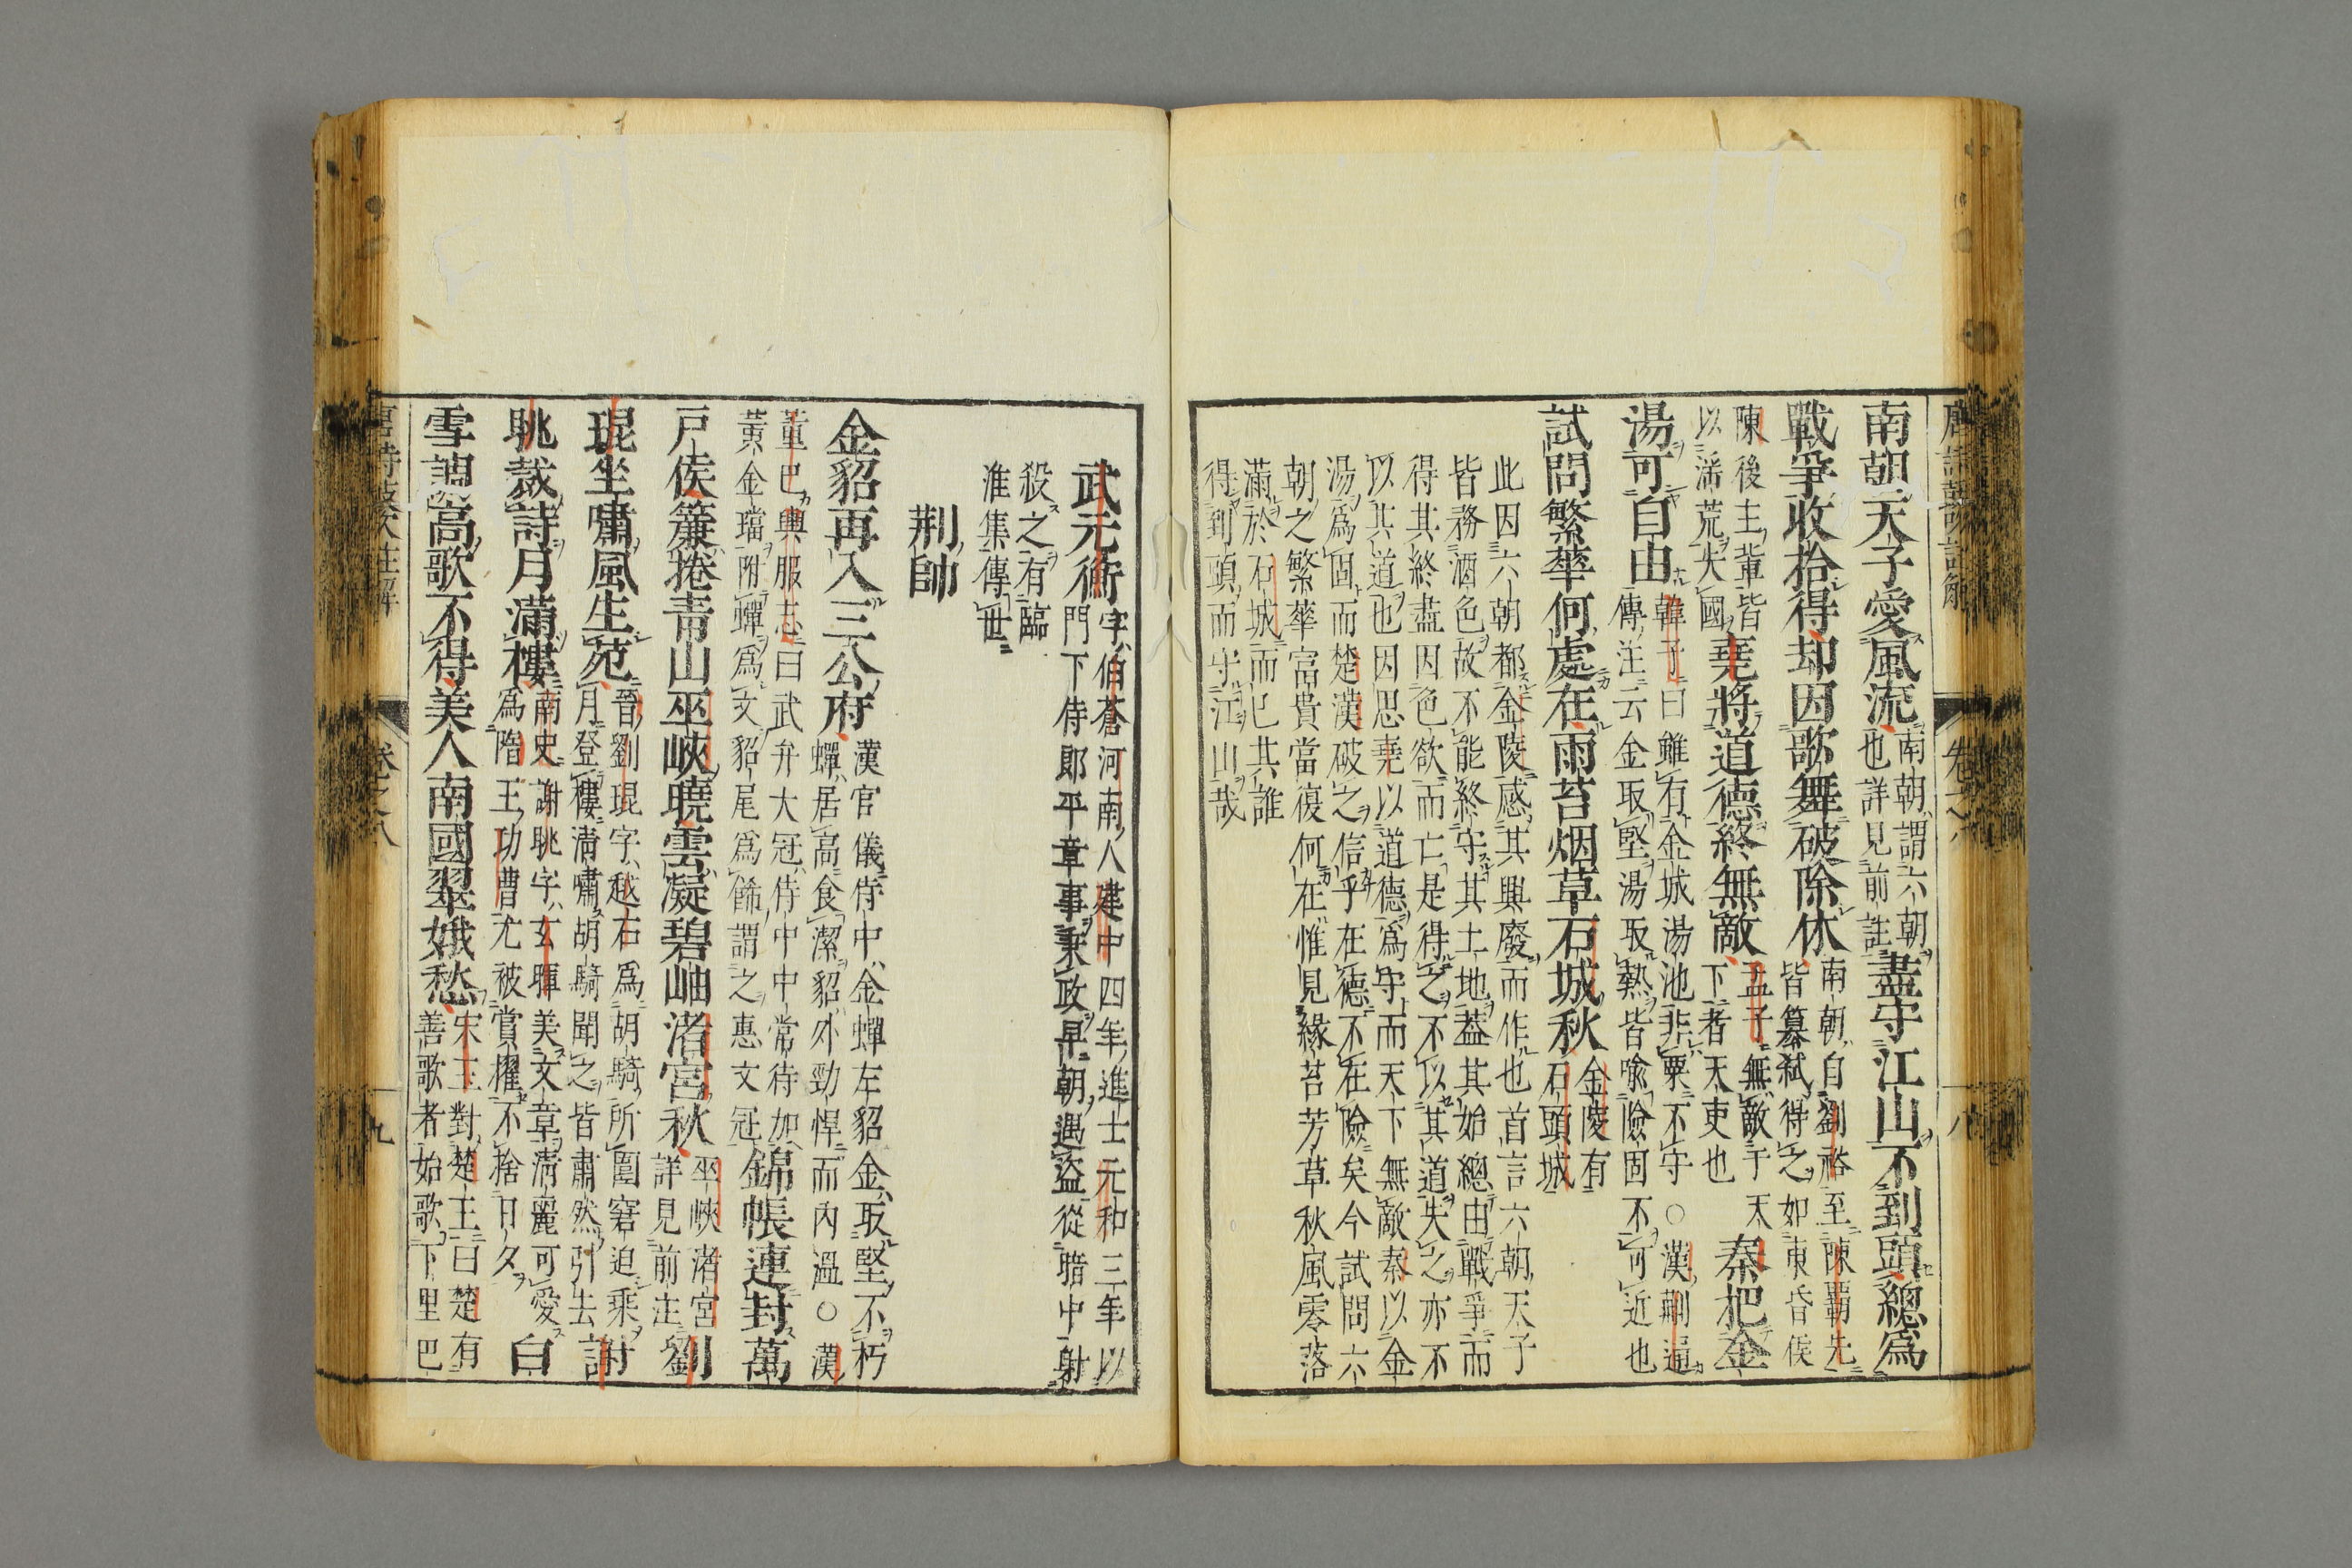 南朝天子愛風流南朝謂六朝也詳見前註盡守江山不到頭總爲
戰爭收拾得却因歌舞破除休南朝自劉裕至陳霸先皆簒弑得之如東昏侯
陳後主輩皆以滛荒失國堯將道德終無敵孟子無敵于天下者天吏也秦把金
湯可自由韓子曰雖有金城湯池非粟不守○漢蒯通傳注云金取堅湯取熱皆喻險固不可近也
試問繁華何處在雨苔烟草石城秋金陵有石頭城
此因六朝都金陵感其興廢而作也首言六朝天子
皆務酒色故不能終守其土地葢其始總由戰爭而
得其終盡因色欲而亡是得之不以其道失之亦不
以其道也因思堯以道德爲守而天下無敵秦以金
湯爲固而楚漢破之信乎在德不在險矣今試問六
朝之繁華富貴當復何在惟見緣苔芳草秋風零落
滿於石城而已其誰
得到頭而守江山哉
武元衡字伯蒼河南人建中四年進士元和三年以門下侍郎平章事秉政早朝遇盜從暗中射
殺之有臨
淮集傳世
荆帥
金貂再入三公府漢官儀侍中金蟬左貂金取堅不朽蟬居高食潔貂外勁悍而內溫○漢
董巴輿服志曰武弁大冠侍中中常待加黃金璫附蟬爲文貂尾爲飾謂之惠文冠錦帳連封萬
戶侯簾捲青山巫峽曉雲凝碧岫渚宮秋巫峽渚宮詳見前注劉
琨坐嘯風生苑晉劉琨字越石爲胡騎所圍窘迫乘月登樓淸嘯胡騎聞之皆肅然引去謝
眺裁詩月滿樓南史謝眺字玄暉美文章淸麗可愛爲隋王功曹尤被賞櫂不捨日夕白
雪調高歌不得美人南國翠娥愁宋玉對楚王曰楚有善歌者始歌下里巴
卷之八
八
九